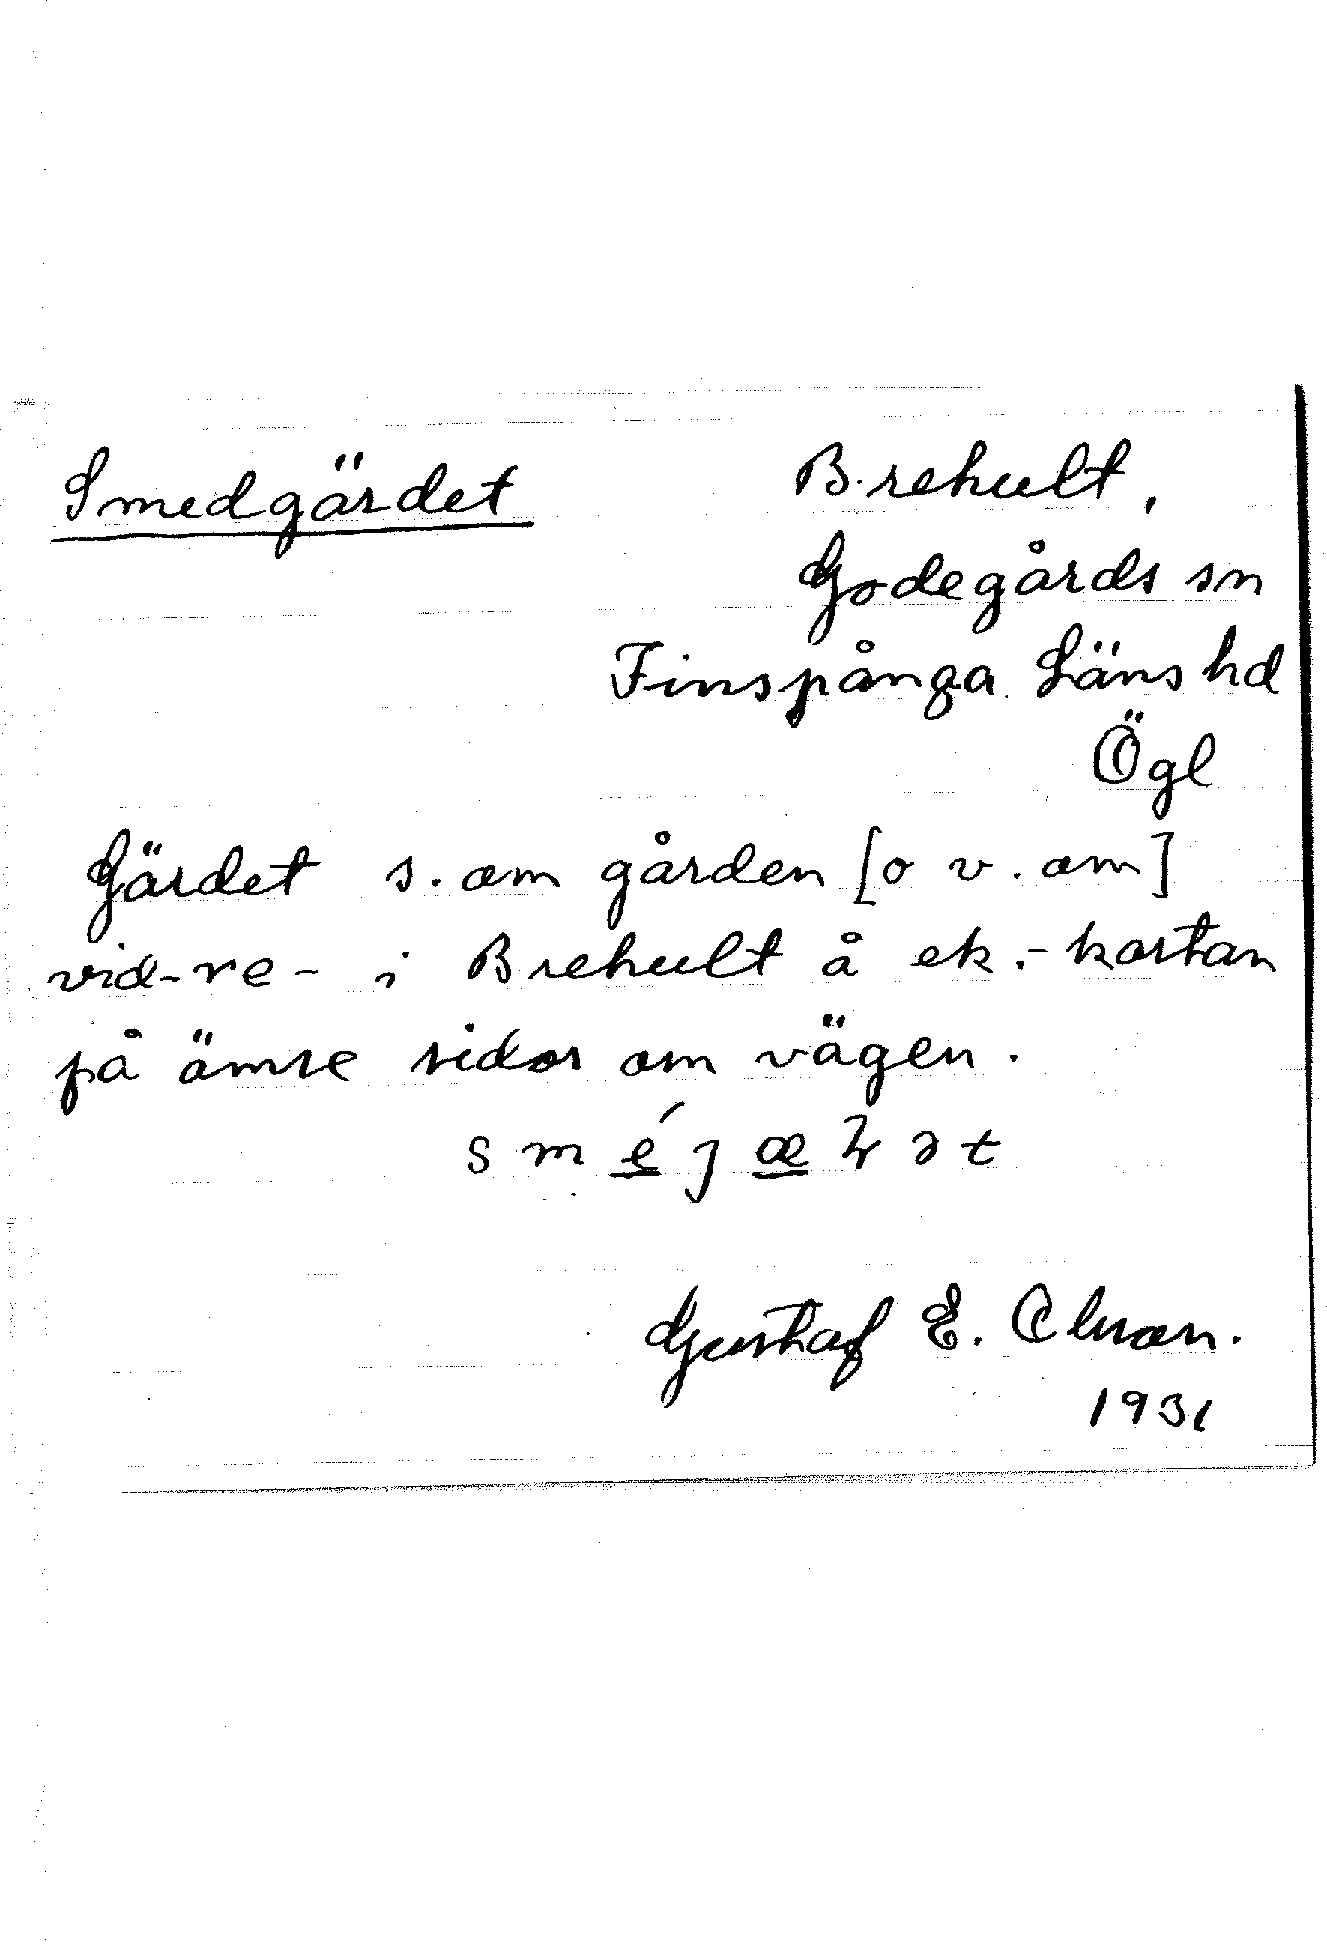 Smedgärdet
Brehult,
Godegårds sn
Finspånga Läns hd
Ögl
Gärdet s. om gården [o v. om]
vid -re- i Brehult å ek.-kartan
på ömse sidor om vägen.
Gustaf E. Clnson.
1931